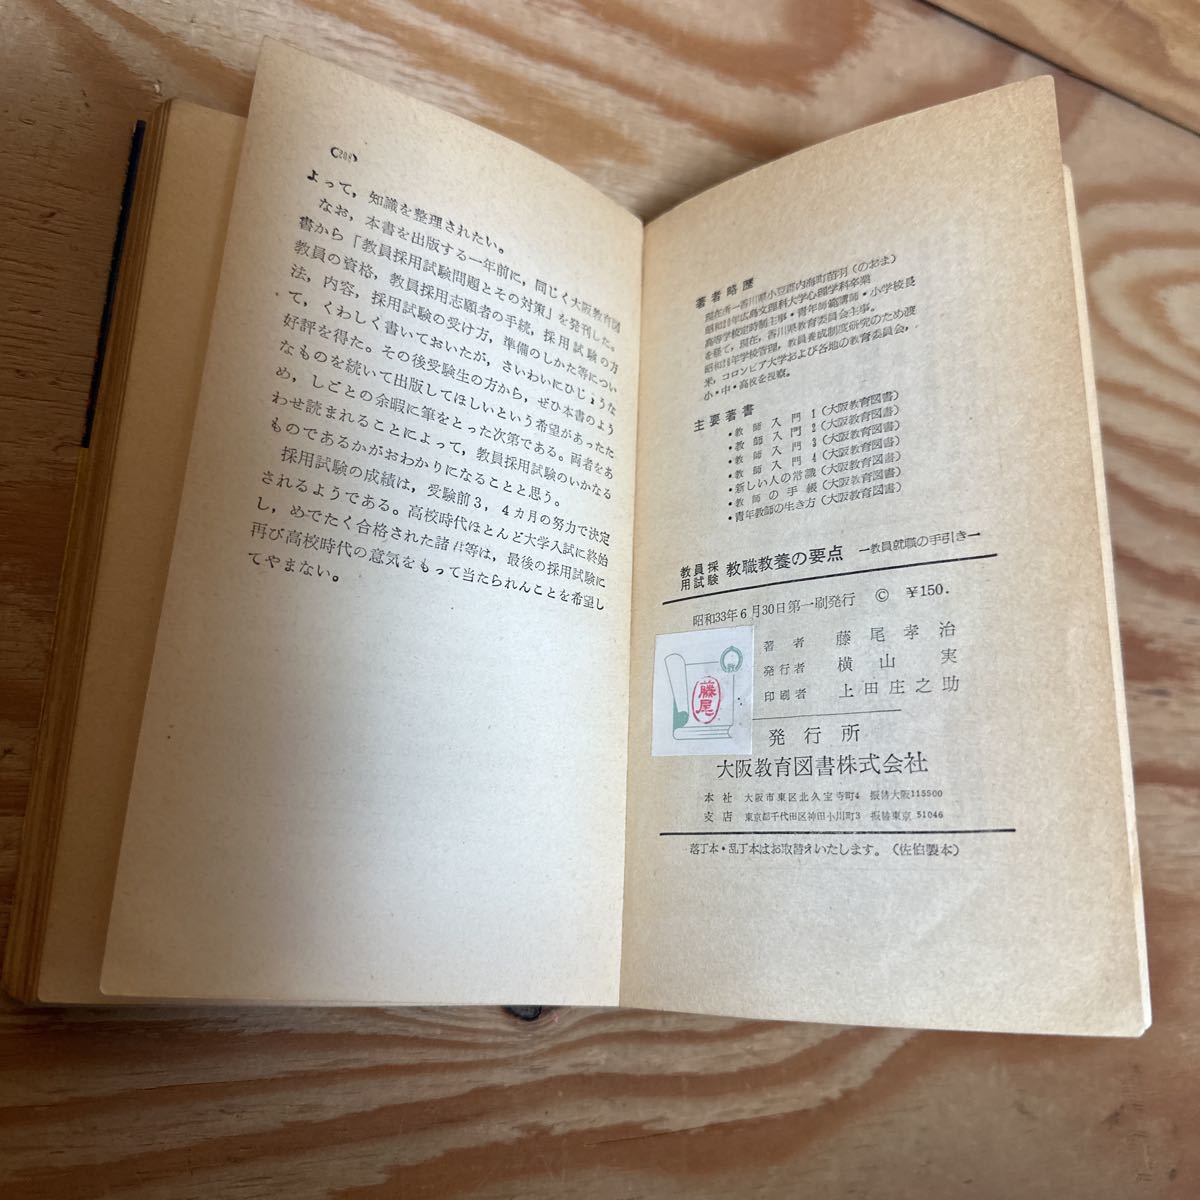 (208)
よって，知識を整理されたい。
なお，本書を出版する一年前に，同じく大阪教育図
書から「教員採用試験問題とその対策」を発刊した。
教員の資格，教員採用志願者の手続，採用試験の方
法，内容，採用試験の受け方，準備のしかた等につい
て，くわしく書いておいたが，さいわいにひじょうな
好評を得た。その後受験生の方から，ぜひ本書のよう
なものを続いて出版してほしいという希望があったた
め，しごとの余暇に筆をとった次第である。両者をあ
わせ読まれることによって，教員採用試験のいかなる
ものであるかがおわかりになることと思う。
採用試験の成績は，受験前3，4カ月の努力で決定
されるようである。高校時代ほとんど大学入試に終始
し，めでたく合格された諸君等は，最後の採用試験に
再び高校時代の意気をもって当たられんことを希望し
てやまない。
著者略歴
現在所－香川県小豆郡内海町苗羽（のおま）
昭和21年広島文理科大学心理学科卒業
高等学校定時制主事・青年師範講師・小学校長
を経て，現在，香川県教育委員会主事。
昭和28年学校管理，教員養成制度研究のため渡
米，コロンビア大学および各地の教育委員会，
小・中・高校を視察。
主要著書
・教師入門1（大阪教育図書）
・教師入門2（大阪教育図書）
・教師入門3（大阪教育図書）
・教師入門4（大阪教育図書）
・新しい人の常識（大阪教育図書）
・教師の手帳（大阪教育図書）
・青年教師の生き方（大阪教育図書）
教員採用試験 教職教養の要点 ―教員就職の手引き―
昭和33年6月30日第一刷発行 © ￥150.
著者 藤尾孝治
発行者 横山実
印刷者 上田庄之助
藤尾
発行所
大阪教育図書株式会社
本社 大阪市東区北久宝寺町4 振替大阪115500
支店 東京都千代田区神田小川町3 振替東京 51046
落丁本・乱丁本はお取替えいたします。（佐伯製本）